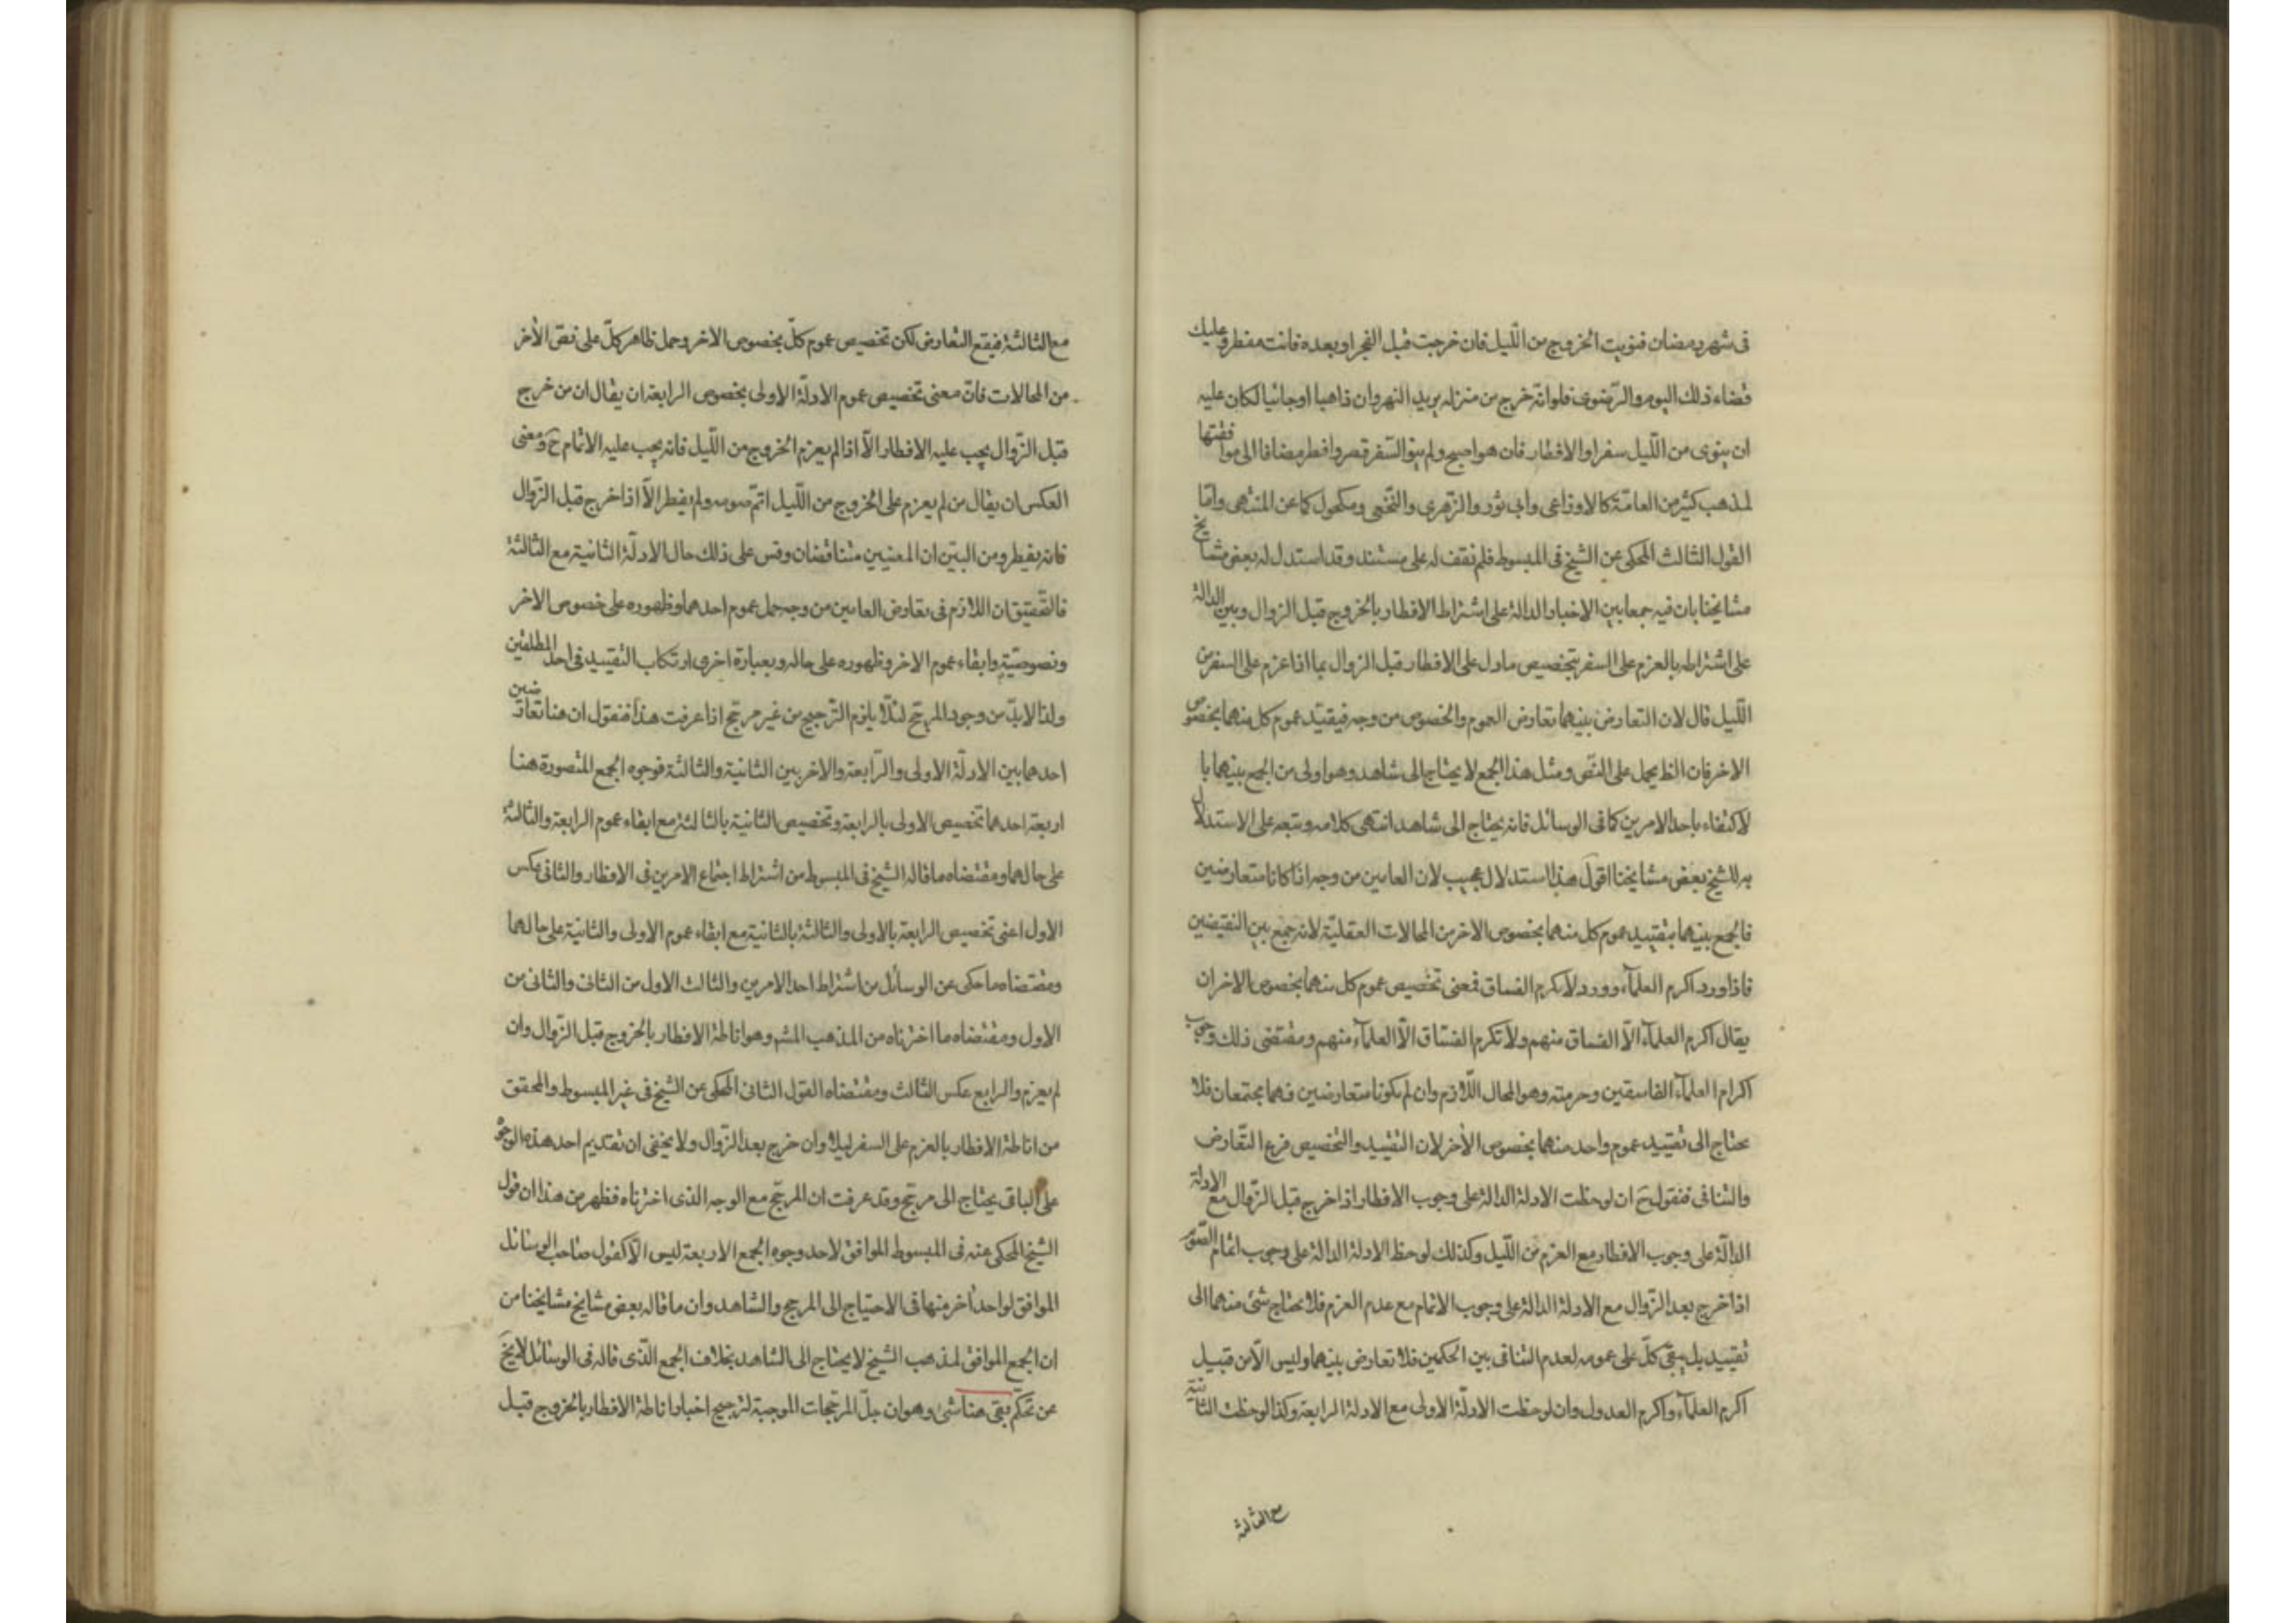 فى شهر رمضان فنويت الخروج من اللّيل فان خرجت قبل الفجر او بعده فانت مفطر وعليك
قضاء ذلك اليوم والرّضوى فلو انّه خرج من منزله يريد النهروان ذاهبا اوجائيا لكان عليه
ان ينوى من اللّيل سفرا والافطار فان هو اصبح ولم ينو السّفر قصر وافطر مضافا الى موافقتها
لمذهب كثير من العامّة كالاوزاعى وابى ثور والزّهرى والنّخعى ومكحول كما عن المنتهى وامّا
القول الثالث المحكى عن الشيخ فى المبسوط فلم نقف له على مستند وقد استدل له بعض مشايخ
مشايخنا بان فيه جمعا بين الاخبار الدالة على اشتراط الافطار بالخروج قبل الزوال وبين الدالة
على اشتراطه بالعزم على السفر بتخصيص مادل على الافطار قبل الزوال بما اذا عزم على السفر من
اللّيل قال لان التعارض بينهما تعارض العموم والخصوص من وجه فيقيّد عموم كل منهما بخصوص
الاخر فان الظ يحمل على النّص ومثل هذا الجمع لا يحتاج الى شاهد وهو اولى من الجمع بينهما با
لاكتفاء باحد الامرين كما فى الوسائل فانه يحتاج الى شاهد انتهى كلامه وتبعه على الاستدلال
به للشيخ بعض مشايخنا اقول هذا استدلال عجيب لان العامين من وجه اذا كانا متعارضين
فالجمع بينهما بتقييد عموم كل منهما بخصوص الاخر من المحالات العقليّة لانه جمع بين النقيضين
فاذا ورد اكرم العلمآء وورد لا تكرم الفساق فمعنى تخصيص عموم كل منهما بخصوص الاخر ان
يقال اكرم العلمآء الّا الفساق منهم ولا تكرم الفسّاق الّا العلمآء منهم ومقتضى ذلك وجوب
اكرام العلمآء الفاسقين وحرمته وهو المحال اللّازم وان لم يكونا متعارضين فهما يجتمعان فلا
يحتاج الى تقييد عموم واحد منهما بخصوص الأخر لان التقييد والتخصيص فرع التّعارض
والتنافى فنقول ح ان لوحظت الادلة الدالة على وجوب الافطار اذا خرج قبل الزّوال مع الادلة
الدالّة على وجوب الافطار مع العزم من اللّيل وكذلك لوحظ الادلة الدالة على وجوب اتمام الصّوم
اذا خرج بعد الزّوال مع الادلة الدالة على وجوب الاتمام مع عدم العزم فلا يحتاج شئ منهما الى
تقييد بل يبقى كلّ على عمومه لعدم التنافى بين الحكمين فلا تعارض بينهما وليس الّا من قبيل
اكرم العلمآء واكرم العدول وان لوحظت الادلّة الاولى مع الادلة الرابعة وكذا لوحظت الثانية
مع الثالثة
مع الثالثة فيقع التعارض لكن تخصيص عموم كلّ بخصوص الاخر وحمل ظاهر كلّ على نصّ الأخر
من المحالات فانّ معنى تخصيص عموم الادلّة الاولى بخصوص الرابعة ان يقال ان من خرج
قبل الزّوال يجب عليه الافطار الّا اذا لم يعزم الخروج من اللّيل فانه يجب عليه الاتمام ح ومعنى
العكس ان يقال من لم يعزم على الخروج من اللّيل اتمّ صومه ولم يفطر الّا اذا خرج قبل الزّوال
فانه يفطر ومن البيّن ان المعنيين متناقضان وقس على ذلك حال الادلّة الثانية مع الثالثة
فالتّحقيق ان اللّازم فى تعارض العامين من وجه حمل عموم احدهما وظهوره على خصوص الاخر
ونصوصيّته وابقاء عموم الاخر وظهوره على حاله وبعبارة اخرى ارتكاب التقييد فى احد المطلقين
ولذا لابدّ من وجود المرجّح لئلّا يلزم الترجيح من غير مرجّح اذا عرفت هذا فنقول ان هنا تعارضين
احدهما بين الادلّة الاولى والرّابعة والاخر بين الثانية والثالثة فوجوه الجمع المتصورة هنا
اربعة احدهما تخصيص الاولى بالرابعة وتخصيص الثانية بالثالثة مع ابقاء عموم الرابعة والثالثة
على حالهما ومقتضاه ما قاله الشيخ فى المبسوط من اشتراط اجتماع الامرين فى الافطار والثانى عكس
الاول اعنى تخصيص الرابعة بالاولى والثالثة بالثانية مع ابقاء عموم الاولى والثانية على حالهما
ومقتضاه ما حكى عن الوسائل من اشتراط احد الامرين والثالث الاول من الثانى والثانى من
الاول ومقتضاه ما اخترناه من المذهب المشه وهو اناطة الافطار بالخروج قبل الزّوال وان
لم يعزم والرابع عكس الثالث ومقتضاه القول الثانى المحكى عن الشيخ فى غير المبسوط والمحقق
من اناطة الافطار بالعزم على السفر ليلا وان خرج بعد الزّوال ولا يخفى ان تقديم احد هذه الوجوه
على الباقى يحتاج الى مرجّح وقد عرفت ان المرجّح مع الوجه الذى اخترناه فظهر من هذا ان قول
الشيخ المحكى عنه فى المبسوط الموافق لاحد وجوه الجمع الاربعة ليس الّا كقول صاحب الوسائل
الموافق لواحد أخر منها فى الاحتياج الى المرجح والشاهد وان ما قاله بعض مشايخ مشايخنا من
ان الجمع الموافق لمذهب الشيخ لا يحتاج الى الشاهد بخلاف الجمع الذّى قاله فى الوسائل لا يخ
عن تحكّم بقى هنا شئ وهو ان جلّ المرجّحات الموجبة لترجيح اخبار اناطة الافطار بالخروج قبل